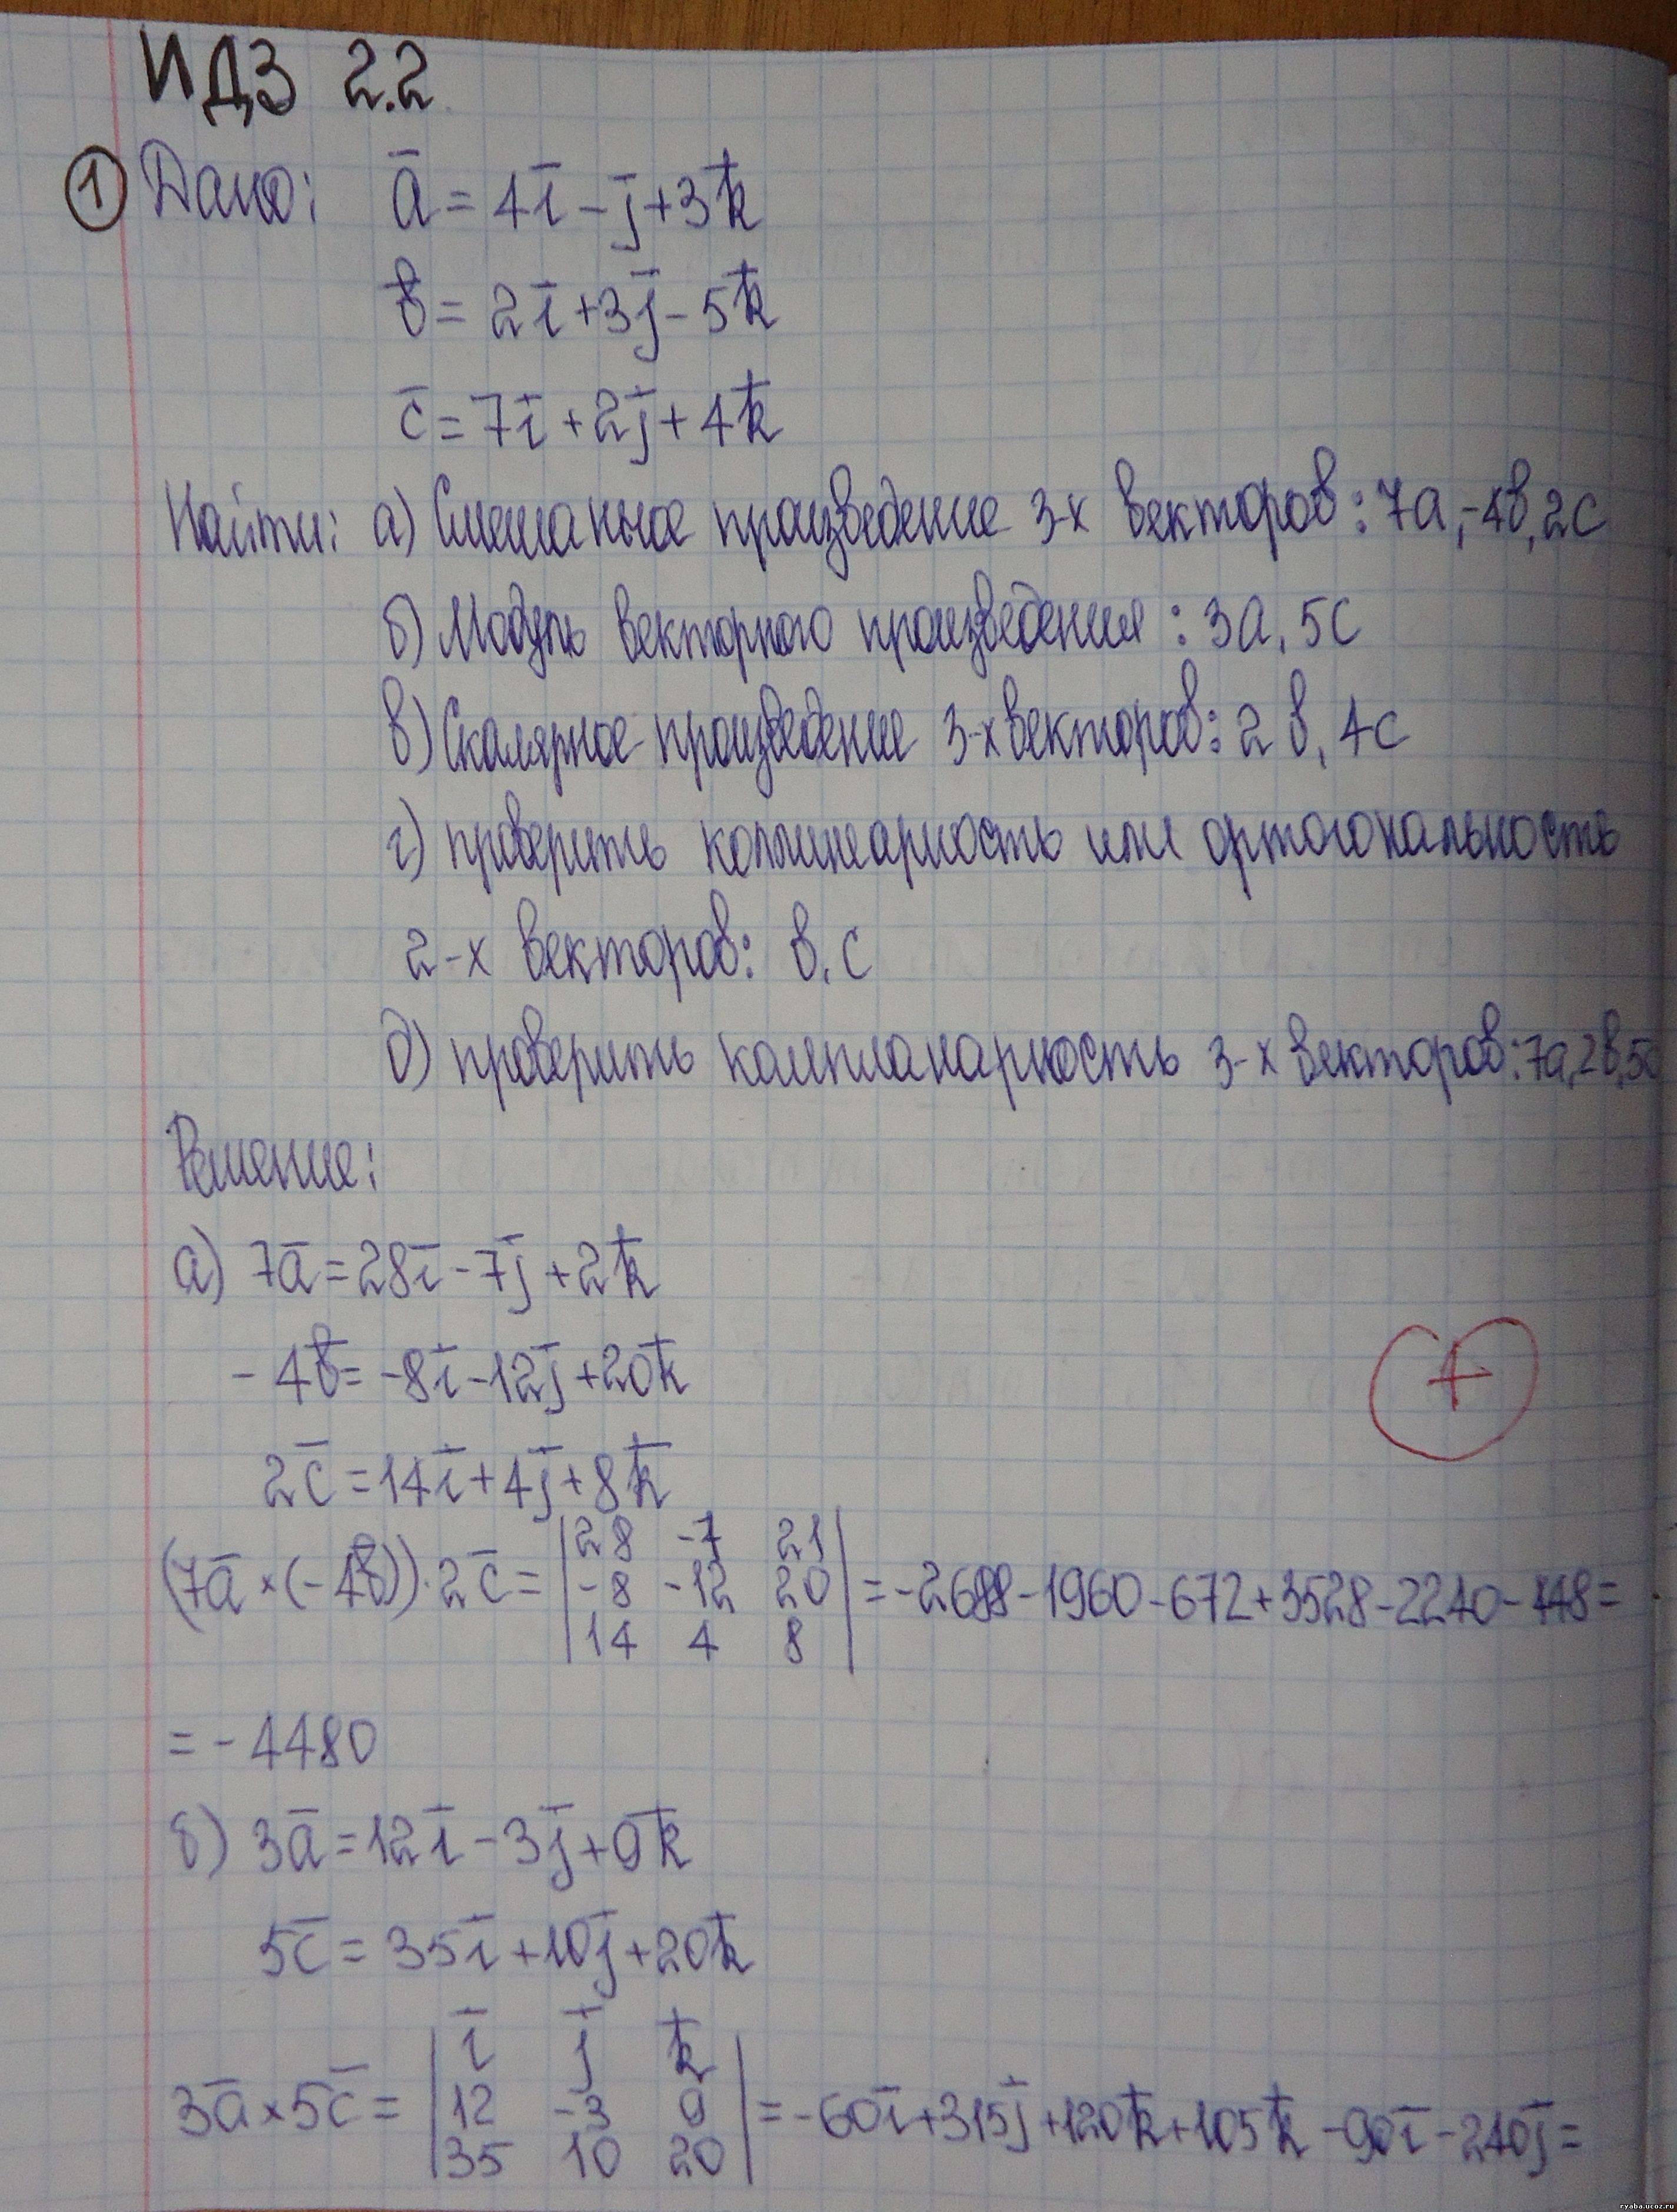 ИДЗ 2.2
① Дано: a̅ = 4i̅ - j̅ + 3k̅
b̅ = 2i̅ + 3j̅ - 5k̅
c̅ = 7i̅ + 2j̅ + 4k̅
Найти: а) Смешанное произведение 3-х векторов: 7a, -4b, 2c
б) Модуль векторного произведения: 3a, 5c
в) Скалярное произведение 3-х векторов: 2b, 4c
г) проверить коллинеарность или ортогональность
2-х векторов: b, c
д) проверить компланарность 3-х векторов: 7a, 2b, 5c
Решение:
а) 7a̅ = 28i̅ - 7j̅ + 2k̅
-4b̅ = -8i̅ - 12j̅ + 20k̅
2c̅ = 14i̅ + 4j̅ + 8k̅
+
|28 -7 21|
(7a̅ × (-4b̅)) · 2c̅ = |-8 -12 20| = -2688 - 1960 - 672 + 3528 - 2240 - 448 =
|14 4 8|
= -4480
б) 3a̅ = 12i̅ - 3j̅ + 9k̅
5c̅ = 35i̅ + 10j̅ + 20k̅
|i̅ j̅ k̅|
3a̅ × 5c̅ = |12 -3 9| = -60i̅ + 315j̅ + 120k̅ + 105k̅ - 90i̅ - 240j̅ =
|35 10 20|
ryaba.ucoz.ru